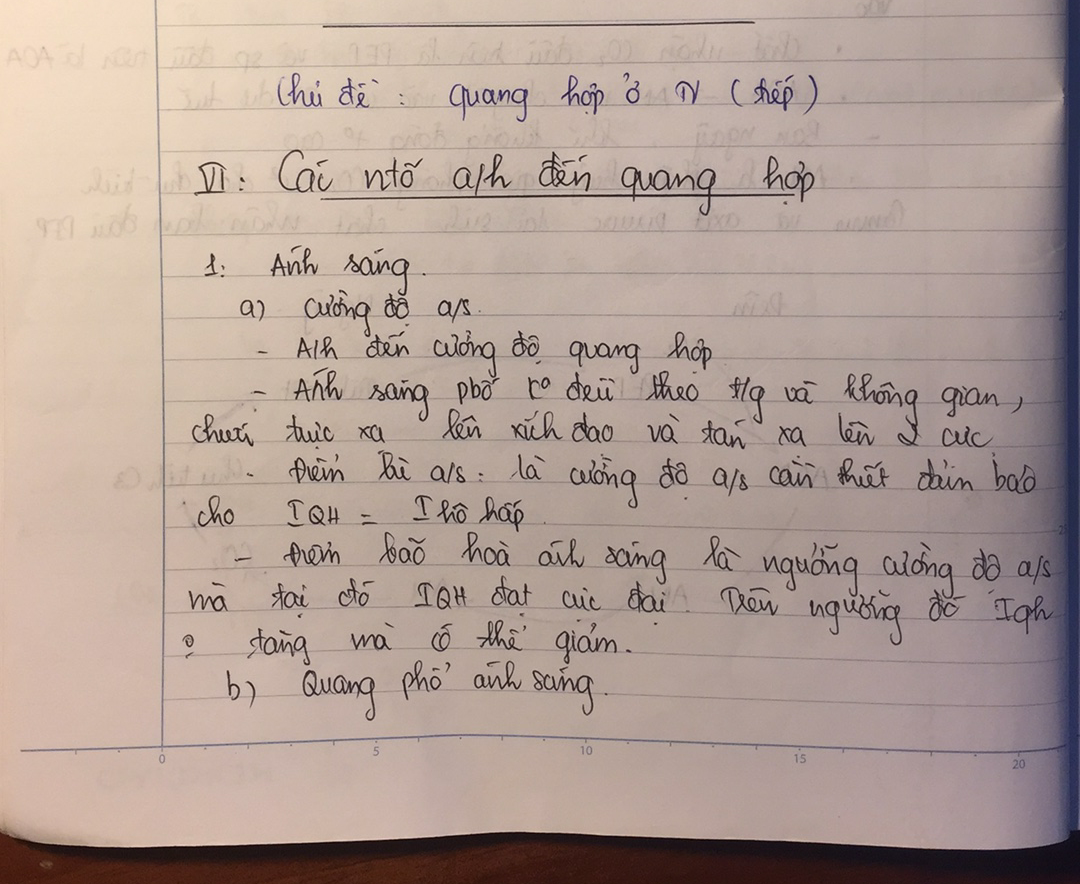 Chủ đề : Quang hợp ở TV (tiếp)
VI: Các ntố a/h đến quang hợp
1: Ánh sáng.
a) Cường độ a/s.
- A/h đến cường độ quang hợp
- Ánh sáng phbố ko đều theo t/g và không gian,
xa lên xích đạo và xa lên 2 cực
- Điểm bù a/s : là cường độ a/s cần thiết đảm bảo
cho IQH = I hô hấp
- Điểm bão hoà ánh sáng là ngưỡng cường độ a/s
mà tại đó IQH đạt cực đại. Trên ngưỡng đó Iqh
tăng mà có thể giảm.
b) Quang phổ ánh sáng.
0 5 10 15 20